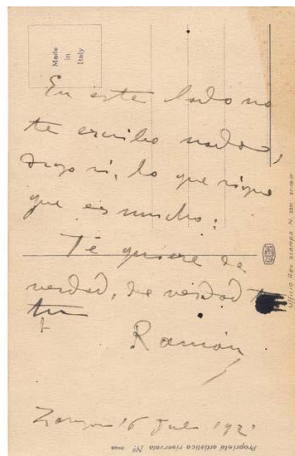 Made
in
Italy
En este lado no
te escribo nada,
digo si, lo que sigue
que es mucho:
Te quiere de
verdad, de verdad
tu
Ramón
16 Julio 192
Proprietà artistica riservata Nº